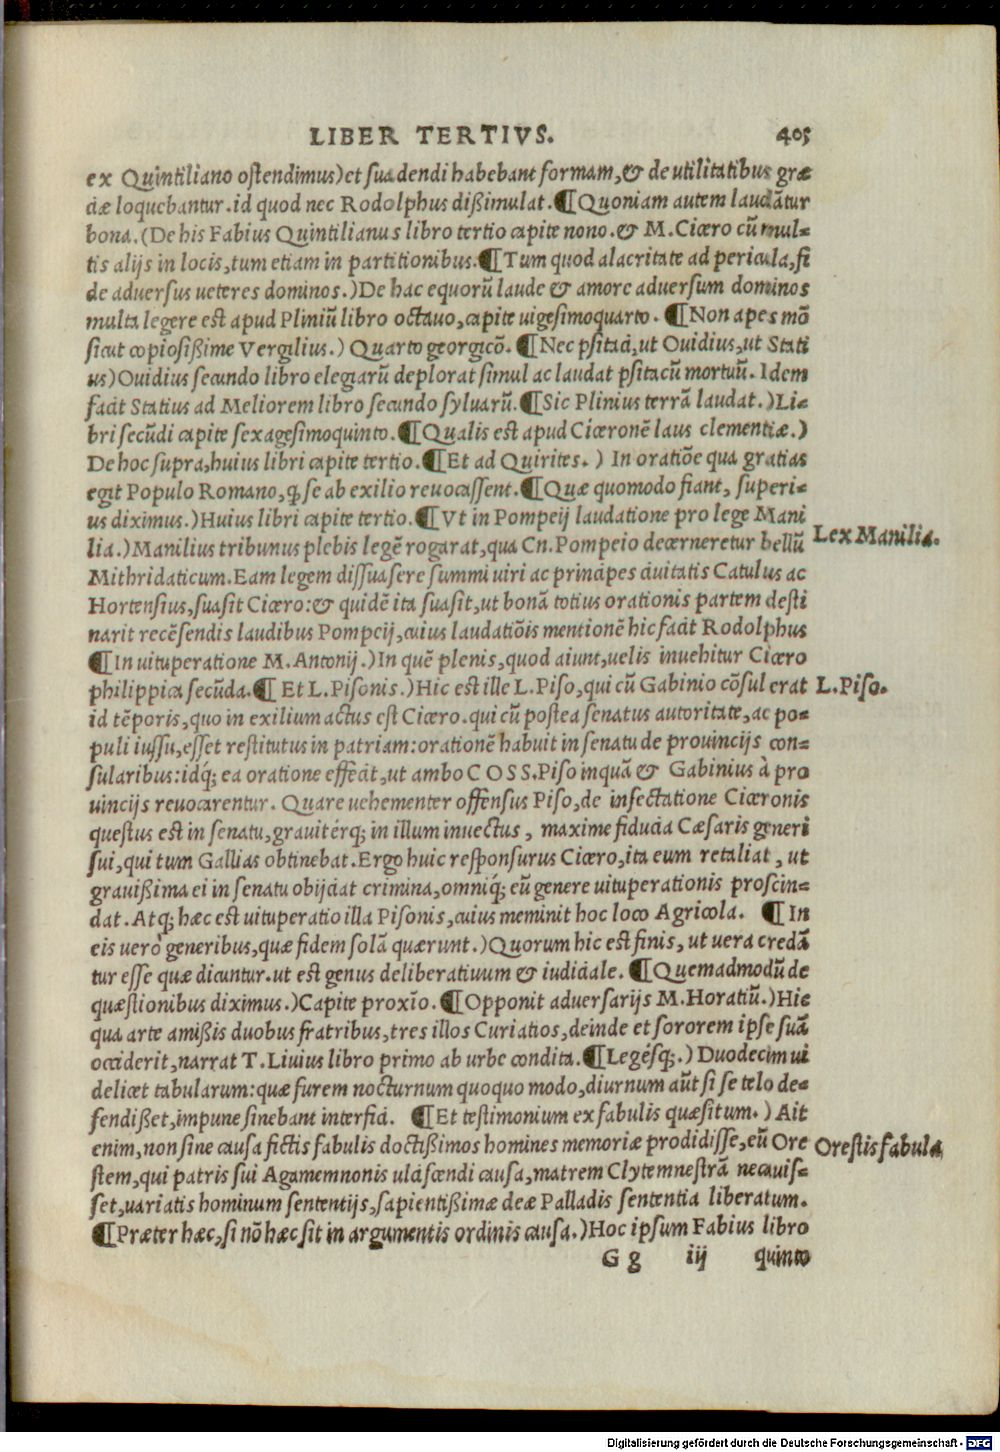 LIBER TERTIVS. 405
ex Quintiliano ostendimus) et suadendi habebant formam, & de utilitatibus græ
ciæ loquebantur. id quod nec Rodolphus dißimulat. ¶ Quoniam autem laudãtur
bona. (De his Fabius Quintilianus libro tertio capite nono. & M. Cicero cũ mul=
tis alijs in locis, tum etiam in partitionibus. ¶ Tum quod alacritate ad pericula, fi
de adversus ueteres dominos.) De hac equorũ laude & amore adversum dominos
multa legere est apud Pliniũ libro octauo, capite uigesimoquarto. ¶ Non apes mõ
sicut copiosißime Vergilius.) Quarto georgicõ. ¶ Nec psitaci, ut Ouidius, ut Stati
us) Ouidius secundo libro elegiarũ deplorat simul ac laudat psitacũ mortuũ. Idem
facit Statius ad Meliorem libro secundo syluarũ. ¶ Sic Plinius terrã laudat.) Li=
bri secũdi capite sexagesimoquinto. ¶ Qualis est apud Ciceronẽ laus clementiæ.)
De hoc supra, huius libri capite tertio. ¶ Et ad Quirites.) In oratiõe qua gratias
egit Populo Romano, ꝙ se ab exilio reuocassent. ¶ Quæ quomodo fiant, superi=
us diximus.) Huius libri capite tertio. ¶ Vt in Pompeij laudatione pro lege Mani
lia.) Manilius tribunus plebis legẽ rogarat, qua Cn. Pompeio decerneretur bellũ
Lex Manilia.
Mithridaticum. Eam legem dissuasere summi uiri ac principes ciuitatis Catulus ac
Hortensius, suasit Cicero: & quidẽ ita suasit, ut bonã totius orationis partem desti
narit recẽsendis laudibus Pompeij, cuius laudatiõis mentionẽ hic facit Rodolphus
¶ In uituperatione M. Antonij.) In quẽ plenis, quod aiunt, uelis inuehitur Cicero
philippica secũda. ¶ Et L. Pisonis.) Hic est ille L. Piso, qui cũ Gabinio cõsul erat
L. Piso.
id tẽporis, quo in exilium actus est Cicero. qui cũ postea senatus autoritate, ac po=
puli iussu, esset restitutus in patriam: orationẽ habuit in senatu de prouincijs con=
sularibus: idq́; ea oratione effecit, ut ambo COSS. Piso inquã & Gabinius à pro
uincijs reuocarentur. Quare uehementer offensus Piso, de insectatione Ciceronis
questus est in senatu, grauitérq; in illum inuectus, maxime fiducia Cæsaris generi
sui, qui tum Gallias obtinebat. Ergo huic responsurus Cicero, ita eum retaliat, ut
grauißima ei in senatu obijciat crimina, omniq́; eũ genere uituperationis proscin=
dat. Atq; hæc est uituperatio illa Pisonis, cuius meminit hoc loco Agricola. ¶ In
eis uero generibus, quæ fidem solã quærunt.) Quorum hic est finis, ut uera credã
tur esse quæ dicuntur. ut est genus deliberatiuum & iudiciale. ¶ Quemadmodũ de
quæstionibus diximus.) Capite proxĩo. ¶ Opponit adversarijs M. Horatiũ.) Hic
qua arte amißis duobus fratribus, tres illos Curiatios, deinde et sororem ipse suã
occiderit, narrat T. Liuius libro primo ab urbe condita. ¶ Legésq;.) Duodecim ui
delicet tabularum: quæ furem nocturnum quoquo modo, diurnum aũt si se telo de=
fendißet, impune sinebant interfici. ¶ Et testimonium ex fabulis quæsitum.) Ait
enim, non sine causa fictis fabulis doctißimos homines memoriæ prodidisse, eũ Ore
Orestis fabula
stem, qui patris sui Agamemnonis ulciscendi causa, matrem Clytemnestrã necauis=
set, uariatis hominum sententijs, sapientißimæ deæ Palladis sententia liberatum.
¶ Præter hæc, si nõ hæc sit in argumentis ordinis causa.) Hoc ipsum Fabius libro
G g iij quinto
Digitalisierung gefördert durch die Deutsche Forschungsgemeinschaft - DFG